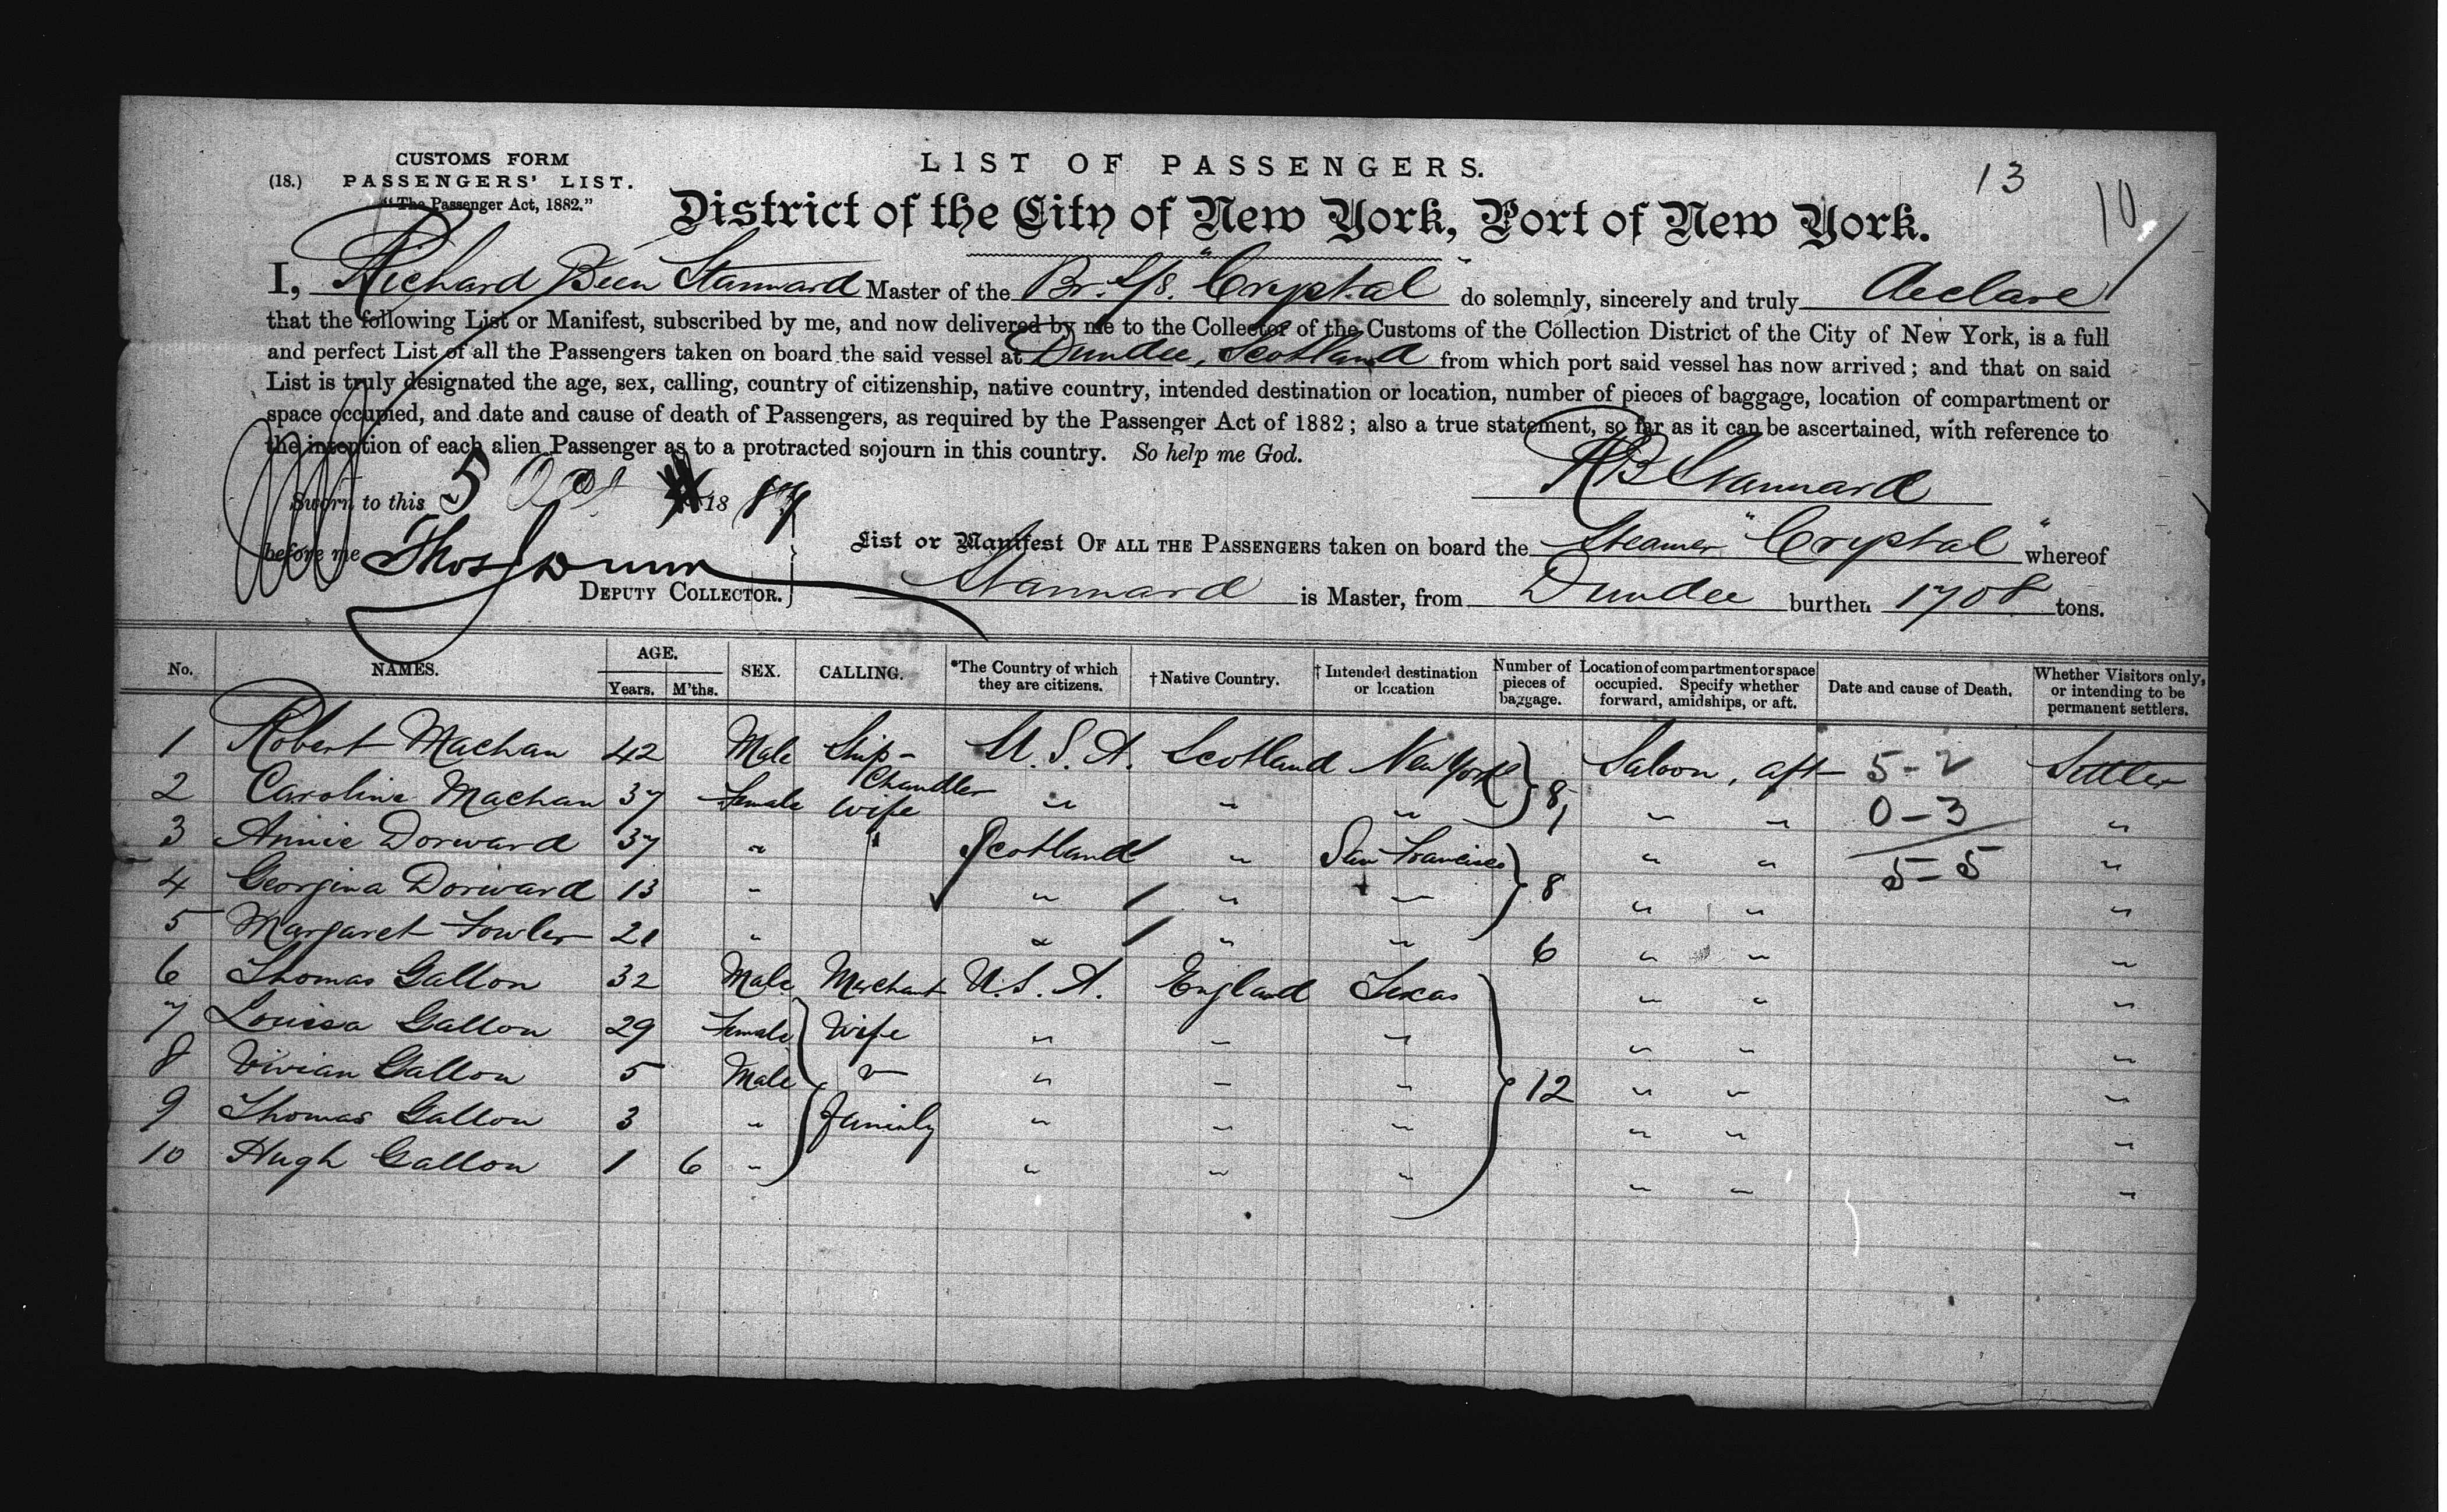 CUSTOMS FORM
(18.) PASSENGERS' LIST.
"The Passenger Act, 1882."
LIST OF PASSENGERS.
13
10
District of the City of New York, Port of New York.
I, Richard Been Stannard Master of the Br. S/S. "Crystal" do solemnly, sincerely and truly declare
that the following List or Manifest, subscribed by me, and now delivered by me to the Collector of the Customs of the Collection District of the City of New York, is a full
and perfect List of all the Passengers taken on board the said vessel at Dundee, Scotland from which port said vessel has now arrived; and that on said
List is truly designated the age, sex, calling, country of citizenship, native country, intended destination or location, number of pieces of baggage, location of compartment or
space occupied, and date and cause of death of Passengers, as required by the Passenger Act of 1882; also a true statement, so far as it can be ascertained, with reference to
the intention of each alien Passenger as to a protracted sojourn in this country. So help me God.
R B Stannard
Sworn to this 5 Oct 1887
before me Thos Dunn
DEPUTY COLLECTOR.
List or Manifest OF ALL THE PASSENGERS taken on board the Steamer "Crystal" whereof
Stannard is Master, from Dundee burthen 1708 tons.
No. NAMES. AGE. Years. M'ths. SEX. CALLING. *The Country of which they are citizens. †Native Country. †Intended destination or location Number of pieces of baggage. Location of compartment or space occupied. Specify whether forward, amidships, or aft. Date and cause of Death. Whether Visitors only, or intending to be permanent settlers.
1 Robert Machan 42 Male Ship-Chandler U.S.A. Scotland New York 8 Saloon, aft 5-2 Settler
2 Caroline Machan 37 Female Wife " " " " " 0-3 "
3 Annie Dorward 37 " Scotland " San Francisco 8 " " 5-5 "
4 Georgina Dorward 13 " " " " " " "
5 Margaret Fowler 21 " " " " 6 " " "
6 Thomas Gallon 32 Male Merchant U.S.A. England Texas 12 " " "
7 Louisa Gallon 29 Female Wife " " " " " "
8 Vivian Gallon 5 Male " " " " " "
9 Thomas Gallon 3 " family " " " " " "
10 Hugh Gallon 1 6 " " " " " " "